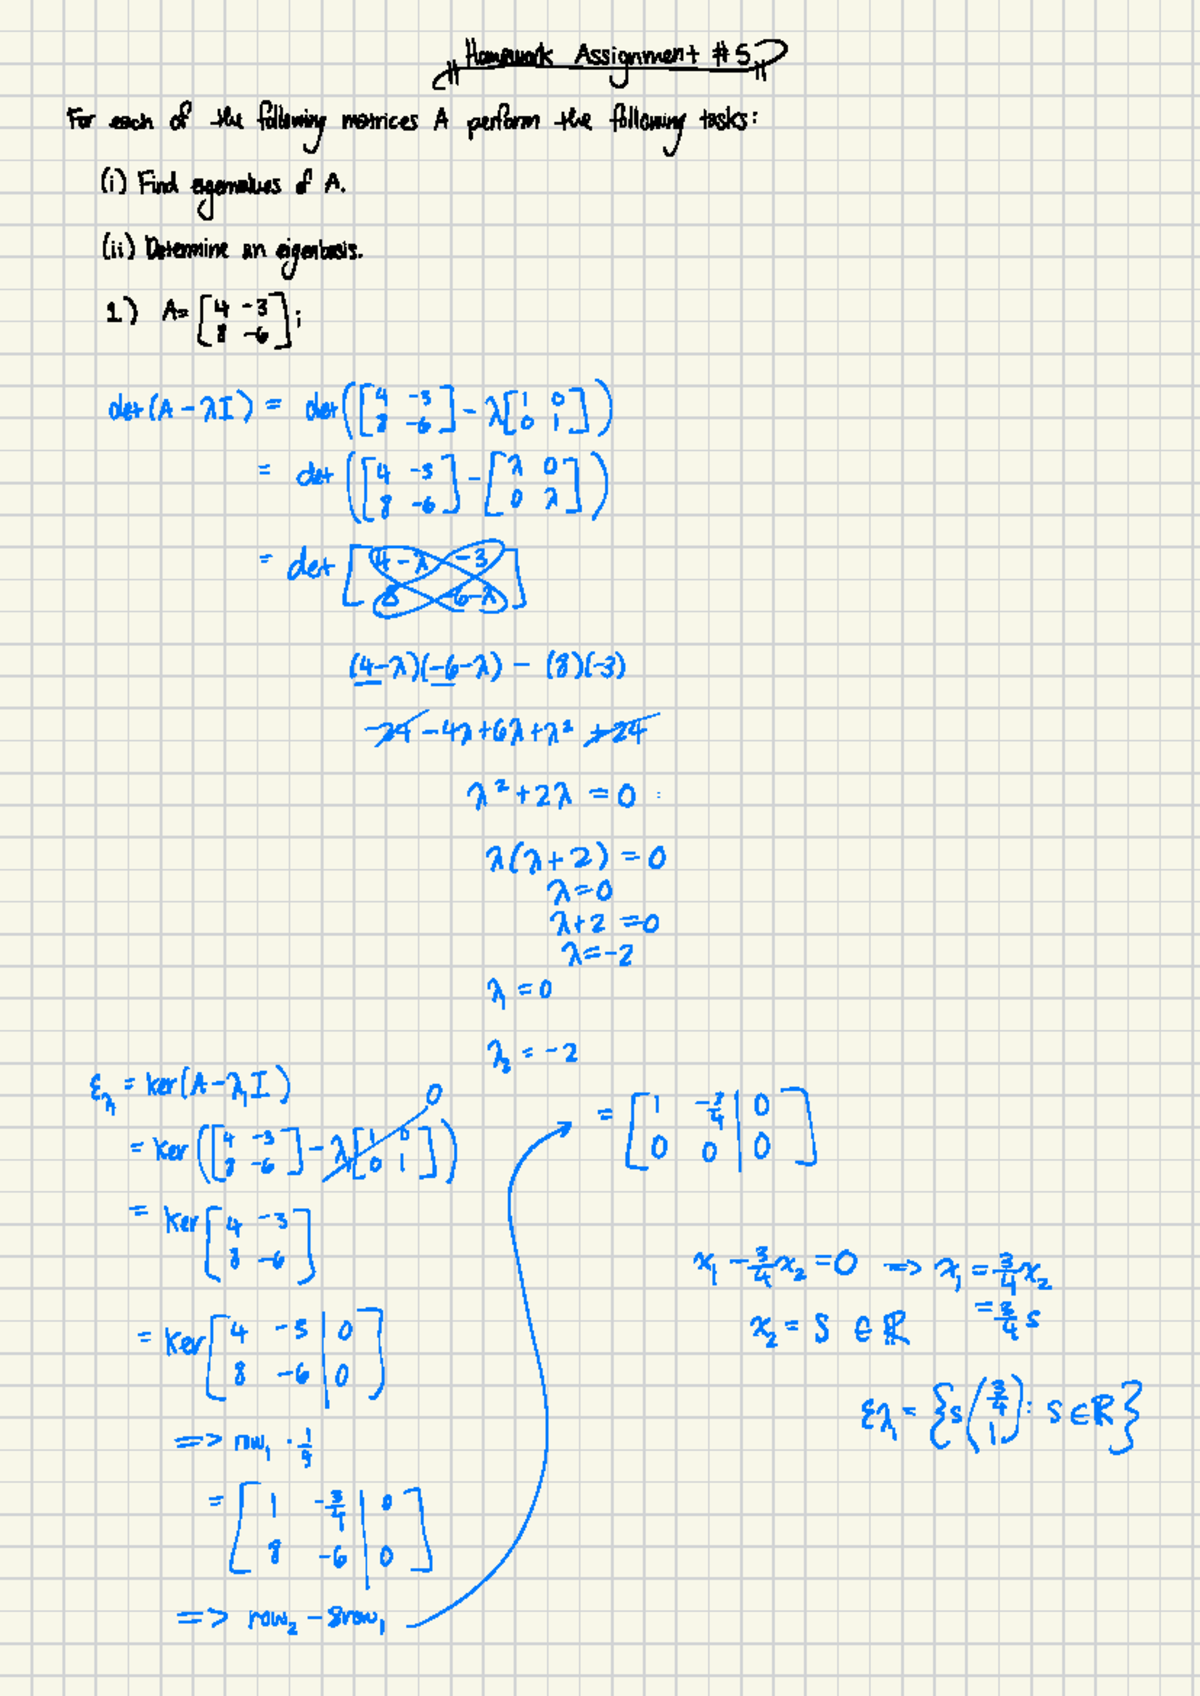 Homework Assignment #5
For each of the following matrices A perform the following tasks:
(i) Find eigenvalues of A.
(ii) Determine an eigenbasis.
1) A= [4 -3; 8 -6];
det(A - λI) = det([4 -3; 8 -6] - λ[1 0; 0 1])
= det([4 -3; 8 -6] - [λ 0; 0 λ])
= det [4-λ -3; 8 -6-λ]
(4-λ)(-6-λ) - (8)(-3)
-24 -4λ+6λ+λ² +24
λ²+2λ = 0
λ(λ+2) = 0
λ=0
λ+2 =0
λ=-2
λ₁ = 0
λ₂ = -2
ℰ_λ₁ = ker(A-λ₁I)
= ker([4 -3; 8 -6] - λ₁[1 0; 0 1]) 0
= ker[4 -3; 8 -6]
= ker[4 -3 | 0; 8 -6 | 0]
=> row₁ · 1/4
= [1 -3/4 | 0; 8 -6 | 0]
=> row₂ - 8row₁
= [1 -3/4 | 0; 0 0 | 0]
x₁ - 3/4 x₂ = 0 => x₁ = 3/4 x₂
= 3/4 s
x₂ = s ∈ ℝ
ℰλ₁ = {s(3/4; 1): s ∈ ℝ}